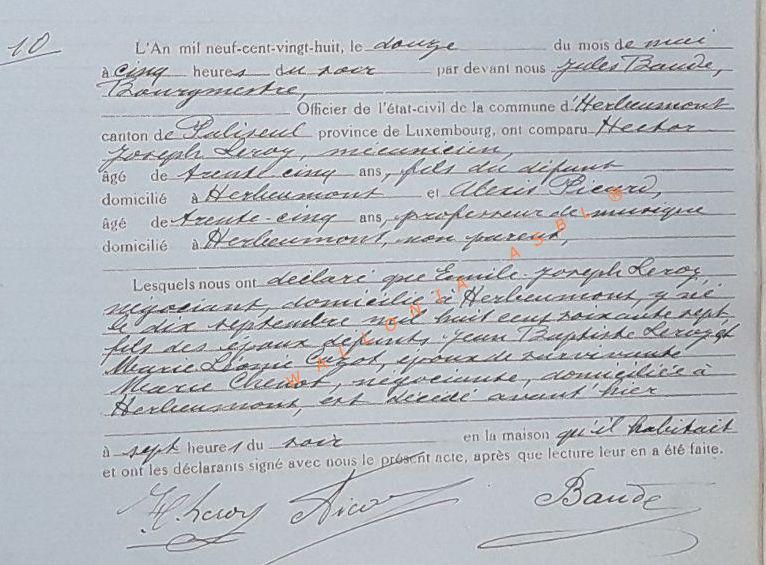 10
L'An mil neuf-cent-vingt-huit, le douze du mois de mai
à cinq heures du soir par devant nous Jules Baude,
Bourgmestre,
Officier de l'état-civil de la commune d'Herbeumont
canton de Paliseul province de Luxembourg, ont comparu Hector
Joseph Leroy, mécanicien,
âgé de trente cinq ans, fils du défunt
domicilié à Herbeumont et Alexis Picard,
âgé de trente-cinq ans, professeur de musique
domicilié à Herbeumont, non parent,
Lesquels nous ont déclaré que Emile Joseph Leroy,
négociant, domicilié à Herbeumont, y né
le dix septembre mil huit cent soixante sept
fils des époux défunts Jean Baptiste Leroy et
Marie Léonie, époux de survivante
Marie Chenot, négociante, domiciliée à
Herbeumont, est décédé avant hier
à sept heures du soir en la maison qu'il habitait
et ont les déclarants signé avec nous le présent acte, après que lecture leur en a été faite.
H Leroy Picard Baude
WALLONIA ASBL ®